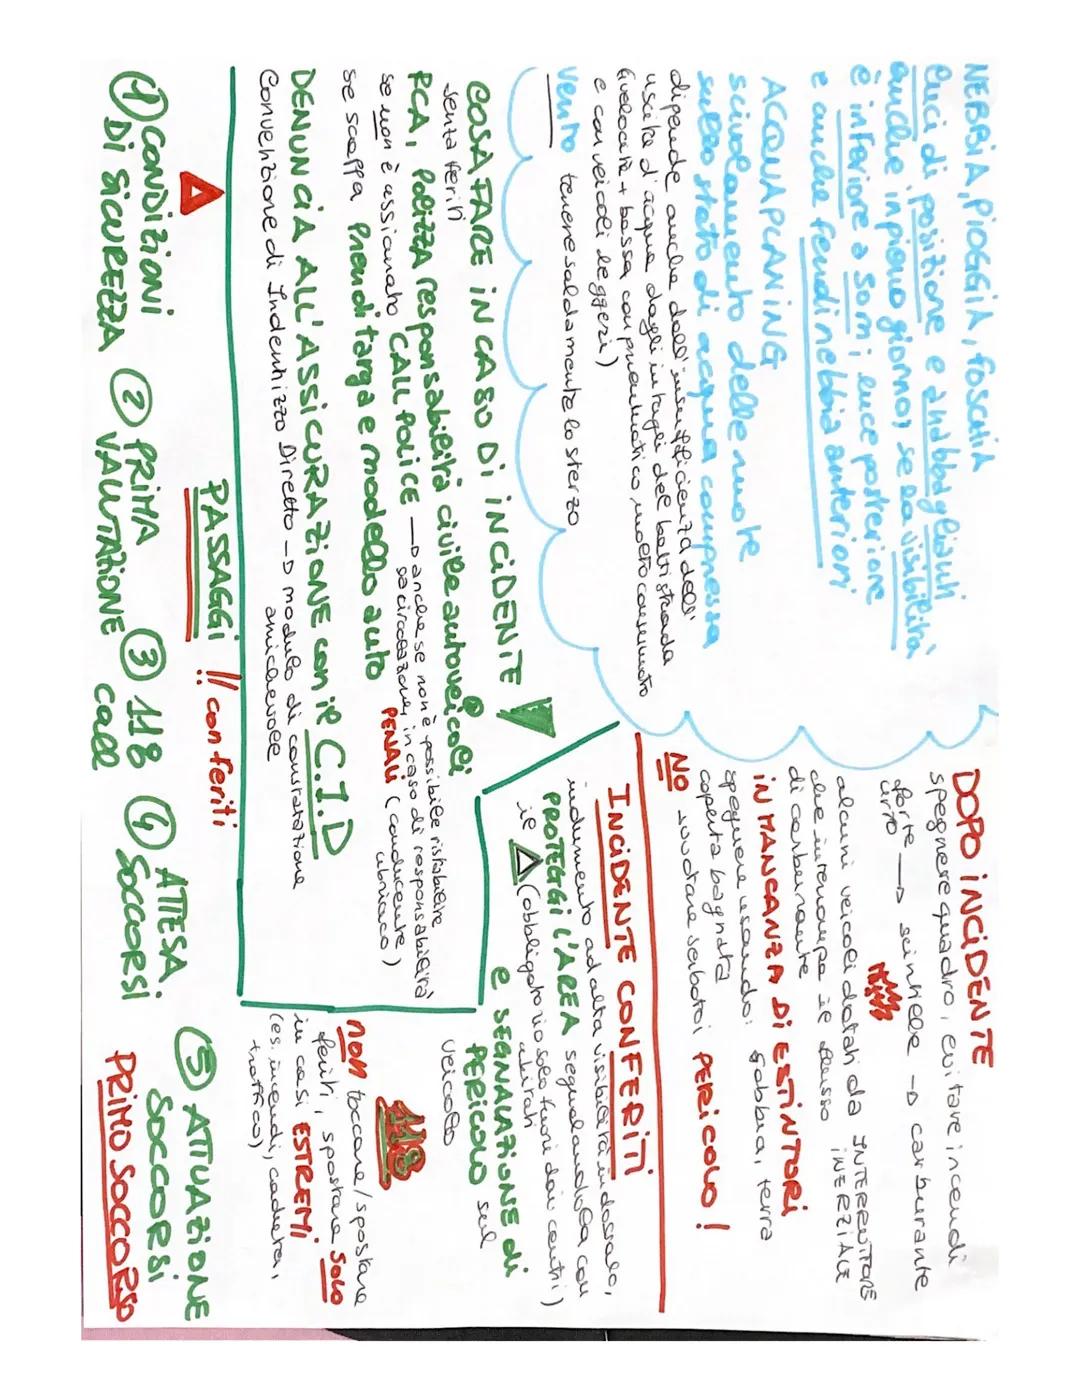 NEBBIA, PIOGGIA, foscHIA
luci di posizione e anabbaglianti
anche in pieno giorno; se la visibilità
è inferiore a 50m; luce posteriore
e anche fendinebbia anteriori
ACQUAPLANING
scivolamento delle ruote
sullo strato di acqua compressa
dipende anche dall'insufficienza dell'
uscita d'acqua dagli intagli del battistrada
(velocità + bassa con pneumatico molto consumato
e con veicoli leggeri)
vento tenere saldamente lo sterzo
DOPO INCIDENTE
spegnere quadro, evitare incendi
forte urto → scintille → carburante
alcuni veicoli dotati da INTERRUTTORE INERZIALE
che interrompe il flusso
di carburante
IN MANCANZA DI ESTINTORI
spegnere usando: sabbia, terra
coperta bagnata
NO svuotare serbatoi PERICOLO!
COSA FARE IN CASO DI INCIDENTE
senza feriti
RCA, Polizza responsabilità civile autoveicoli
se non è assicurato CALL POLICE → anche se non è possibile ristabilire
la circolazione, in caso di responsabilità
PENALI (conducente ubriaco)
se scappa Prendi targa e modello auto
DENUNCIA ALL'ASSICURAZIONE con il C.I.D
Convenzione di Indennizzo Diretto → modulo di constatazione
amichevole
INCIDENTE CON FERITI
indumento ad alta visibilità indossalo,
PROTEGGI L'AREA segnalandola con
il (obbligatorio solo fuori dai centri)
abitati
e SEGNALAZIONE di
PERICOLO sul
veicolo
118
non toccare/spostare
feriti, spostare SOLO
in casi ESTREMI
(es. incendi, caduta,
traffico)
PASSAGGI !! con feriti
① CONDIZIONI
DI SICUREZZA
② PRIMA
VALUTAZIONE
③ 118
call
④ ATTESA
SOCCORSI
⑤ ATTUAZIONE
SOCCORSI
PRIMO SOCCORSO